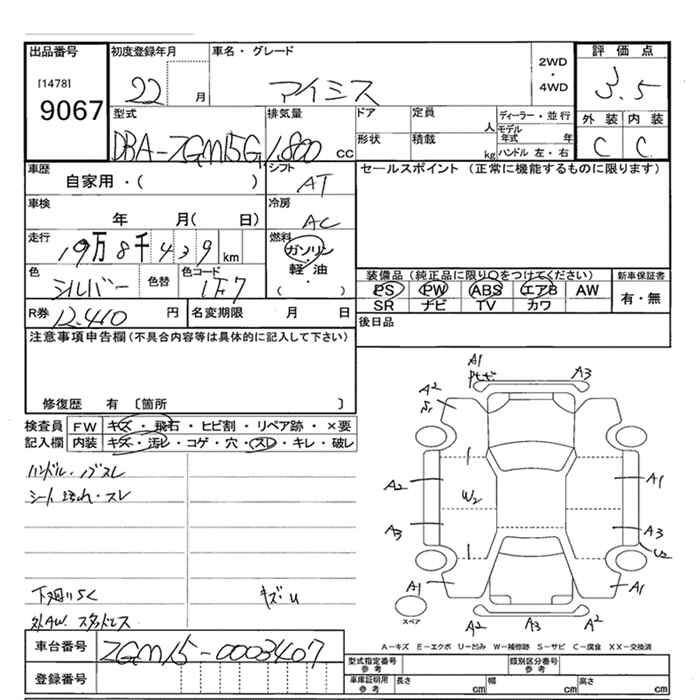 出品番号 初度登録年月 車名・グレード 2WD・4WD 評価点
[1478] 9067 22 月 アイシス 3.5
型式 排気量 ドア 定員 人 ディーラー・並行 外装 内装
モデル年式 年
DBA-ZGM15G 1,800 cc 形状 積載 kg ハンドル 左・右 C C
車歴 シフト セールスポイント (正常に機能するものに限ります)
自家用・( ) AT
車検 冷房
年 月( 日) AC
走行 燃料
19万8千439km ガソリン・軽油・( )
色 色替 色コード 装備品 (純正品に限り○をつけてください) 新車保証書
シルバー 1F7 PS PW ABS エアB AW 有・無
SR ナビ TV カワ
R券 12,410 円 名変期限 月 日 後日品
注意事項申告欄 (不具合内容等は具体的に記入して下さい)
修復歴 有 〔箇所 〕
検査員 FW キズ・飛石・ヒビ割・リペア跡・×要
記入欄 内装 キズ・汚レ・コゲ・穴・スレ・キレ・破レ
ハンドル・ノブスレ
シート汚れ・スレ
下廻りSC
キズ・U
外AW. スタッドレス
A1
A3
A2
S1
A2
W2
A1
A3
A3
U2
A1
A1
A2 A3 A2
スペア
A-キズ E-エクボ U-凹み W-補修跡 S-サビ C-腐食 XX-交換済
車台番号 ZGM15-0003407
登録番号
型式指定番号 参考 類別区分番号 参考
車庫証明用 参考 長さ cm 幅 cm 高さ cm